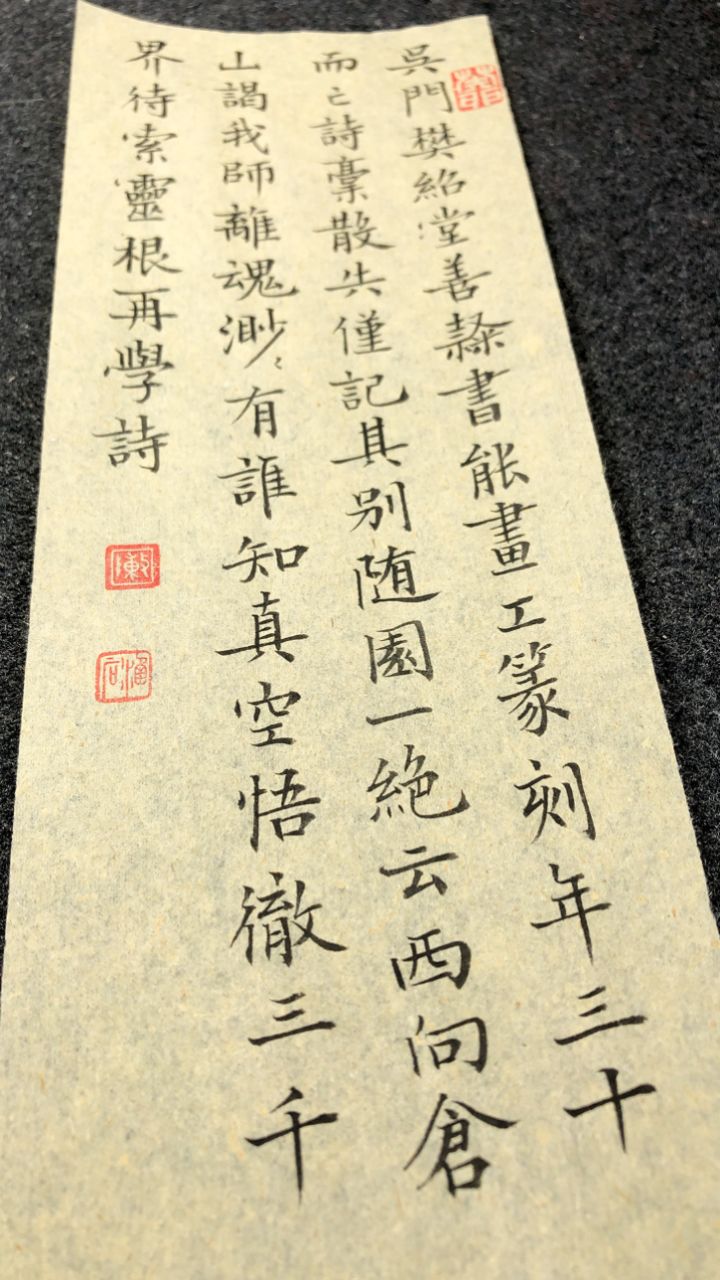 吳門樊紹堂善隸書能畫工篆刻年三十
而亡詩稾散失僅記其別随園一絶云西向倉
山謁我師離魂渺〻有誰知真空悟徹三千
界待索靈根再學詩